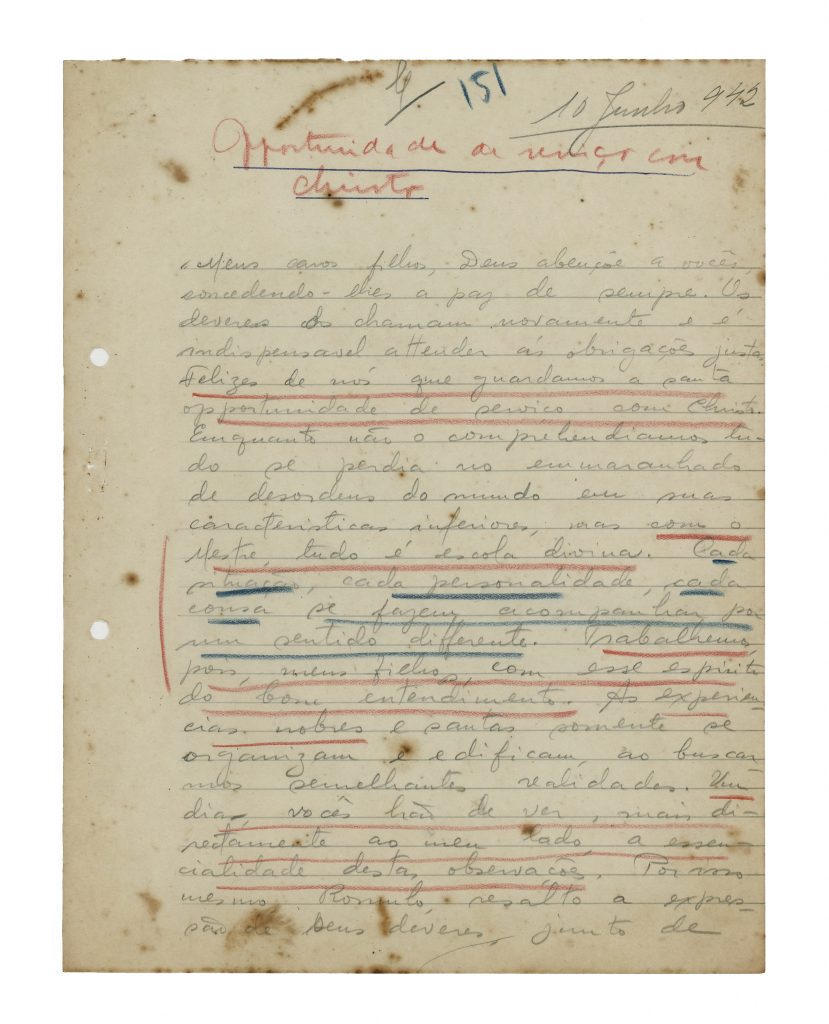 151
10 Junho 942
Opportunidade de serviço com
Christo
"Meus caros filhos, Deus abençôe a vocês,
concedendo-lhes a paz de sempre. Os
deveres os chamam novamente e é
indispensavel attender ás obrigações justas.
Felizes de nós que guardamos a santa
opportunidade de serviço com Christo.
Emquanto não o comprehendiamos tu-
do se perdia no emmaranhado
de desordens do mundo em suas
caracteristicas inferiores, mas com o
Mestre, tudo é escola divina. Cada
situação, cada personalidade, cada
cousa se fazem acompanhar por
um sentido differente. Trabalhemos,
pois, meus filhos, com esse espirito
do bom entendimento. As experien-
cias nobres e santas somente se
organizam e edificam, ao buscar
mos semelhantes realidades. Um
dia, vocês hão de ver, mais di-
rectamente ao meu lado, a essen-
cialidade destas observações. Por isso
mesmo Romulo, resalto a expres-
são de seus deveres, junto de